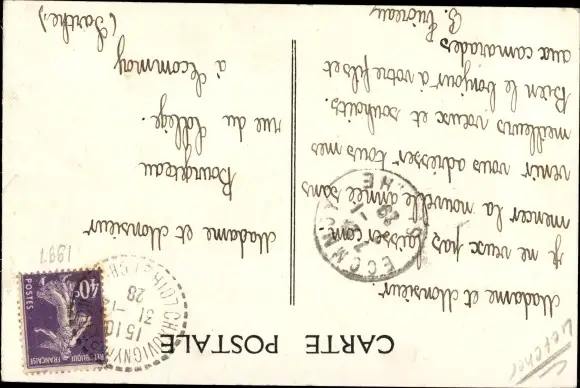 CARTE POSTALE
Madame et Monsieur
Je ne veux pas
laisser com
mencer la nouvelle année sans
venir vous adresser tous mes
meilleurs vœux et souhaits.
Bien le bonjour à votre fils et
aux camarades
Madame et Monsieur
Bourgeteau
rue du Collège.
à Ecommoy
(Sarthe)
ECOMMOY
29
CHAUVIGNY
15 10
31-12
28
40c
POSTES
REPUBLIQUE FRANÇAISE
1997